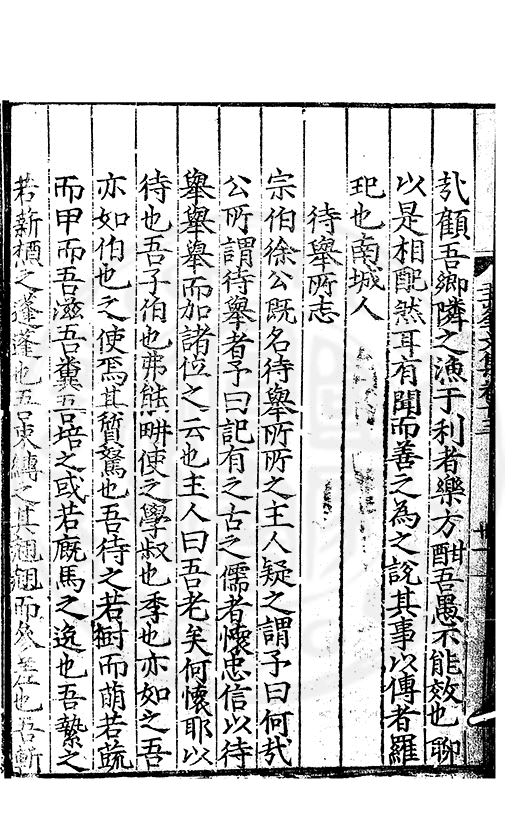 哉顧吾鄉隣之漁于利者樂方酣吾愚不能效也聊
以是相配然耳有聞而善之為之說其事以傳者羅
玘也南城人
待舉所志
宗伯徐公既名待舉所所之主人疑之謂予曰何哉
公所謂待舉者予曰記有之古之儒者懷忠信以待
舉舉舉而加諸位之云也主人曰吾老矣何懷耶以
待也吾子伯也弗能畊使之學叔也季也亦如之吾
亦如伯也之使焉其質駑也吾待之若樹而萌若蔬
而甲而吾滋吾糞吾培之或若廐馬之逸也吾縶之
若薪槱之蓬蓬也吾束縛之其翹翹而然也吾斬